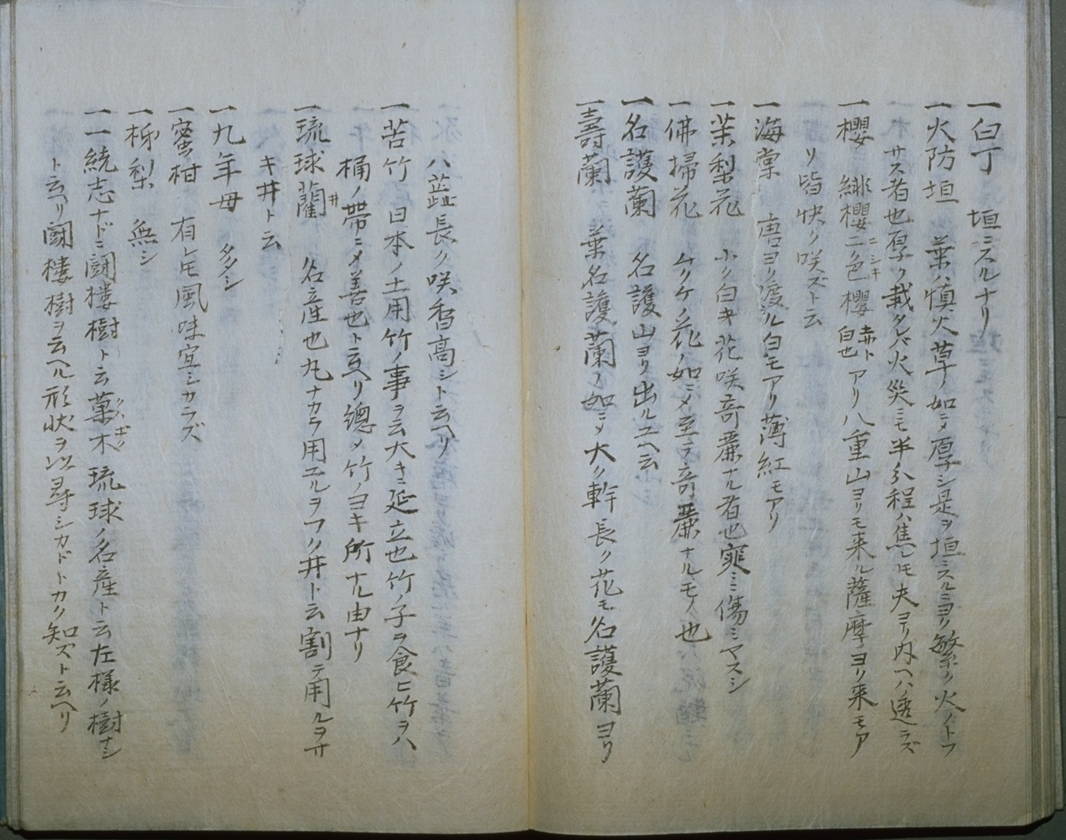 一白丁　垣ニスルナリ
一火防垣　葉ハ慎火草ノ如ニメ厚シ是ヲ垣ニスルニヨリ繁リ火ノトフ
サス者也厚ク栽タレバ火災ニモ半分程ハ焦レモ夫ヨリ内ヘハ透ラズ
一櫻　緋櫻ニク色櫻ニシキ赤ト白也アリ八重山ヨリモ来ル薩摩ヨリ来モア
リ皆快ク咲ズト云
一海棠　唐ヨリ渡ル白モアリ薄紅モアリ
一茉梨花　小ク白キ花咲奇麗ナル者也寒ミ傷ミヤスシ
一佛掃花　ムクケノ花ノ如ニメ至テ奇麗ナルモノ也
一名護蘭　名護山ヨリ出ルユヘ云
一壽蘭　葉名護蘭ノ如ニメ大ク幹長ク花モ名護蘭ヨリ
ハ蕋長ク咲香高シト云ヘリ
一苦竹　日本ノ土用竹ノ事ヲ云大キニ延立也竹ノ子ヲ食ヒ竹ヲハ
桶ノ帯ニメ善也ト云ヘリ總メ竹ノヨキ所ナル由ナリ
一琉球藺井　名産也丸ナカラ用エルヲフク井ト云割テ用ルヲサ
キ井ト云
一九年母　タクシ
一蜜柑　有レモ風味宜シカラズ
一梯梨　無シ
一一統志ナドニ闘樓樹ト云菓木クハボク琉球ノ名産ト云左様ノ樹ナシ
ト云ヘリ闘樓樹ヲ云ヘル形状ヲ以尋シカドトカク知ズト云ヘリ